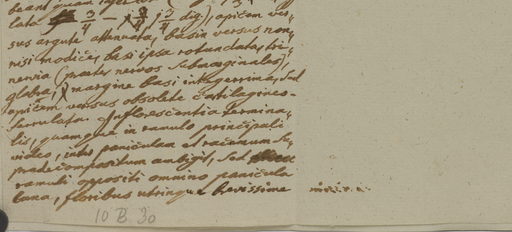 lata 3/4 – 1 1/4 dig), apicem ver-
sus argute attenuata, basin versus non-
nisi modice, basi ipsa rotundata, tri-
nervia (praeter nervos submarginales),
glabra, margine basi integerrima, sed
apicem versus obsolete cartilagineo-
serrulata. Inflorescentia termina-
lis, quamque in ramulo principali
video, inter paniculam et racemum su-
pradecompositum ambigit, sed
ramuli oppositi omnino panicula
bona, floribus utrinque brevissime
10 B. 30